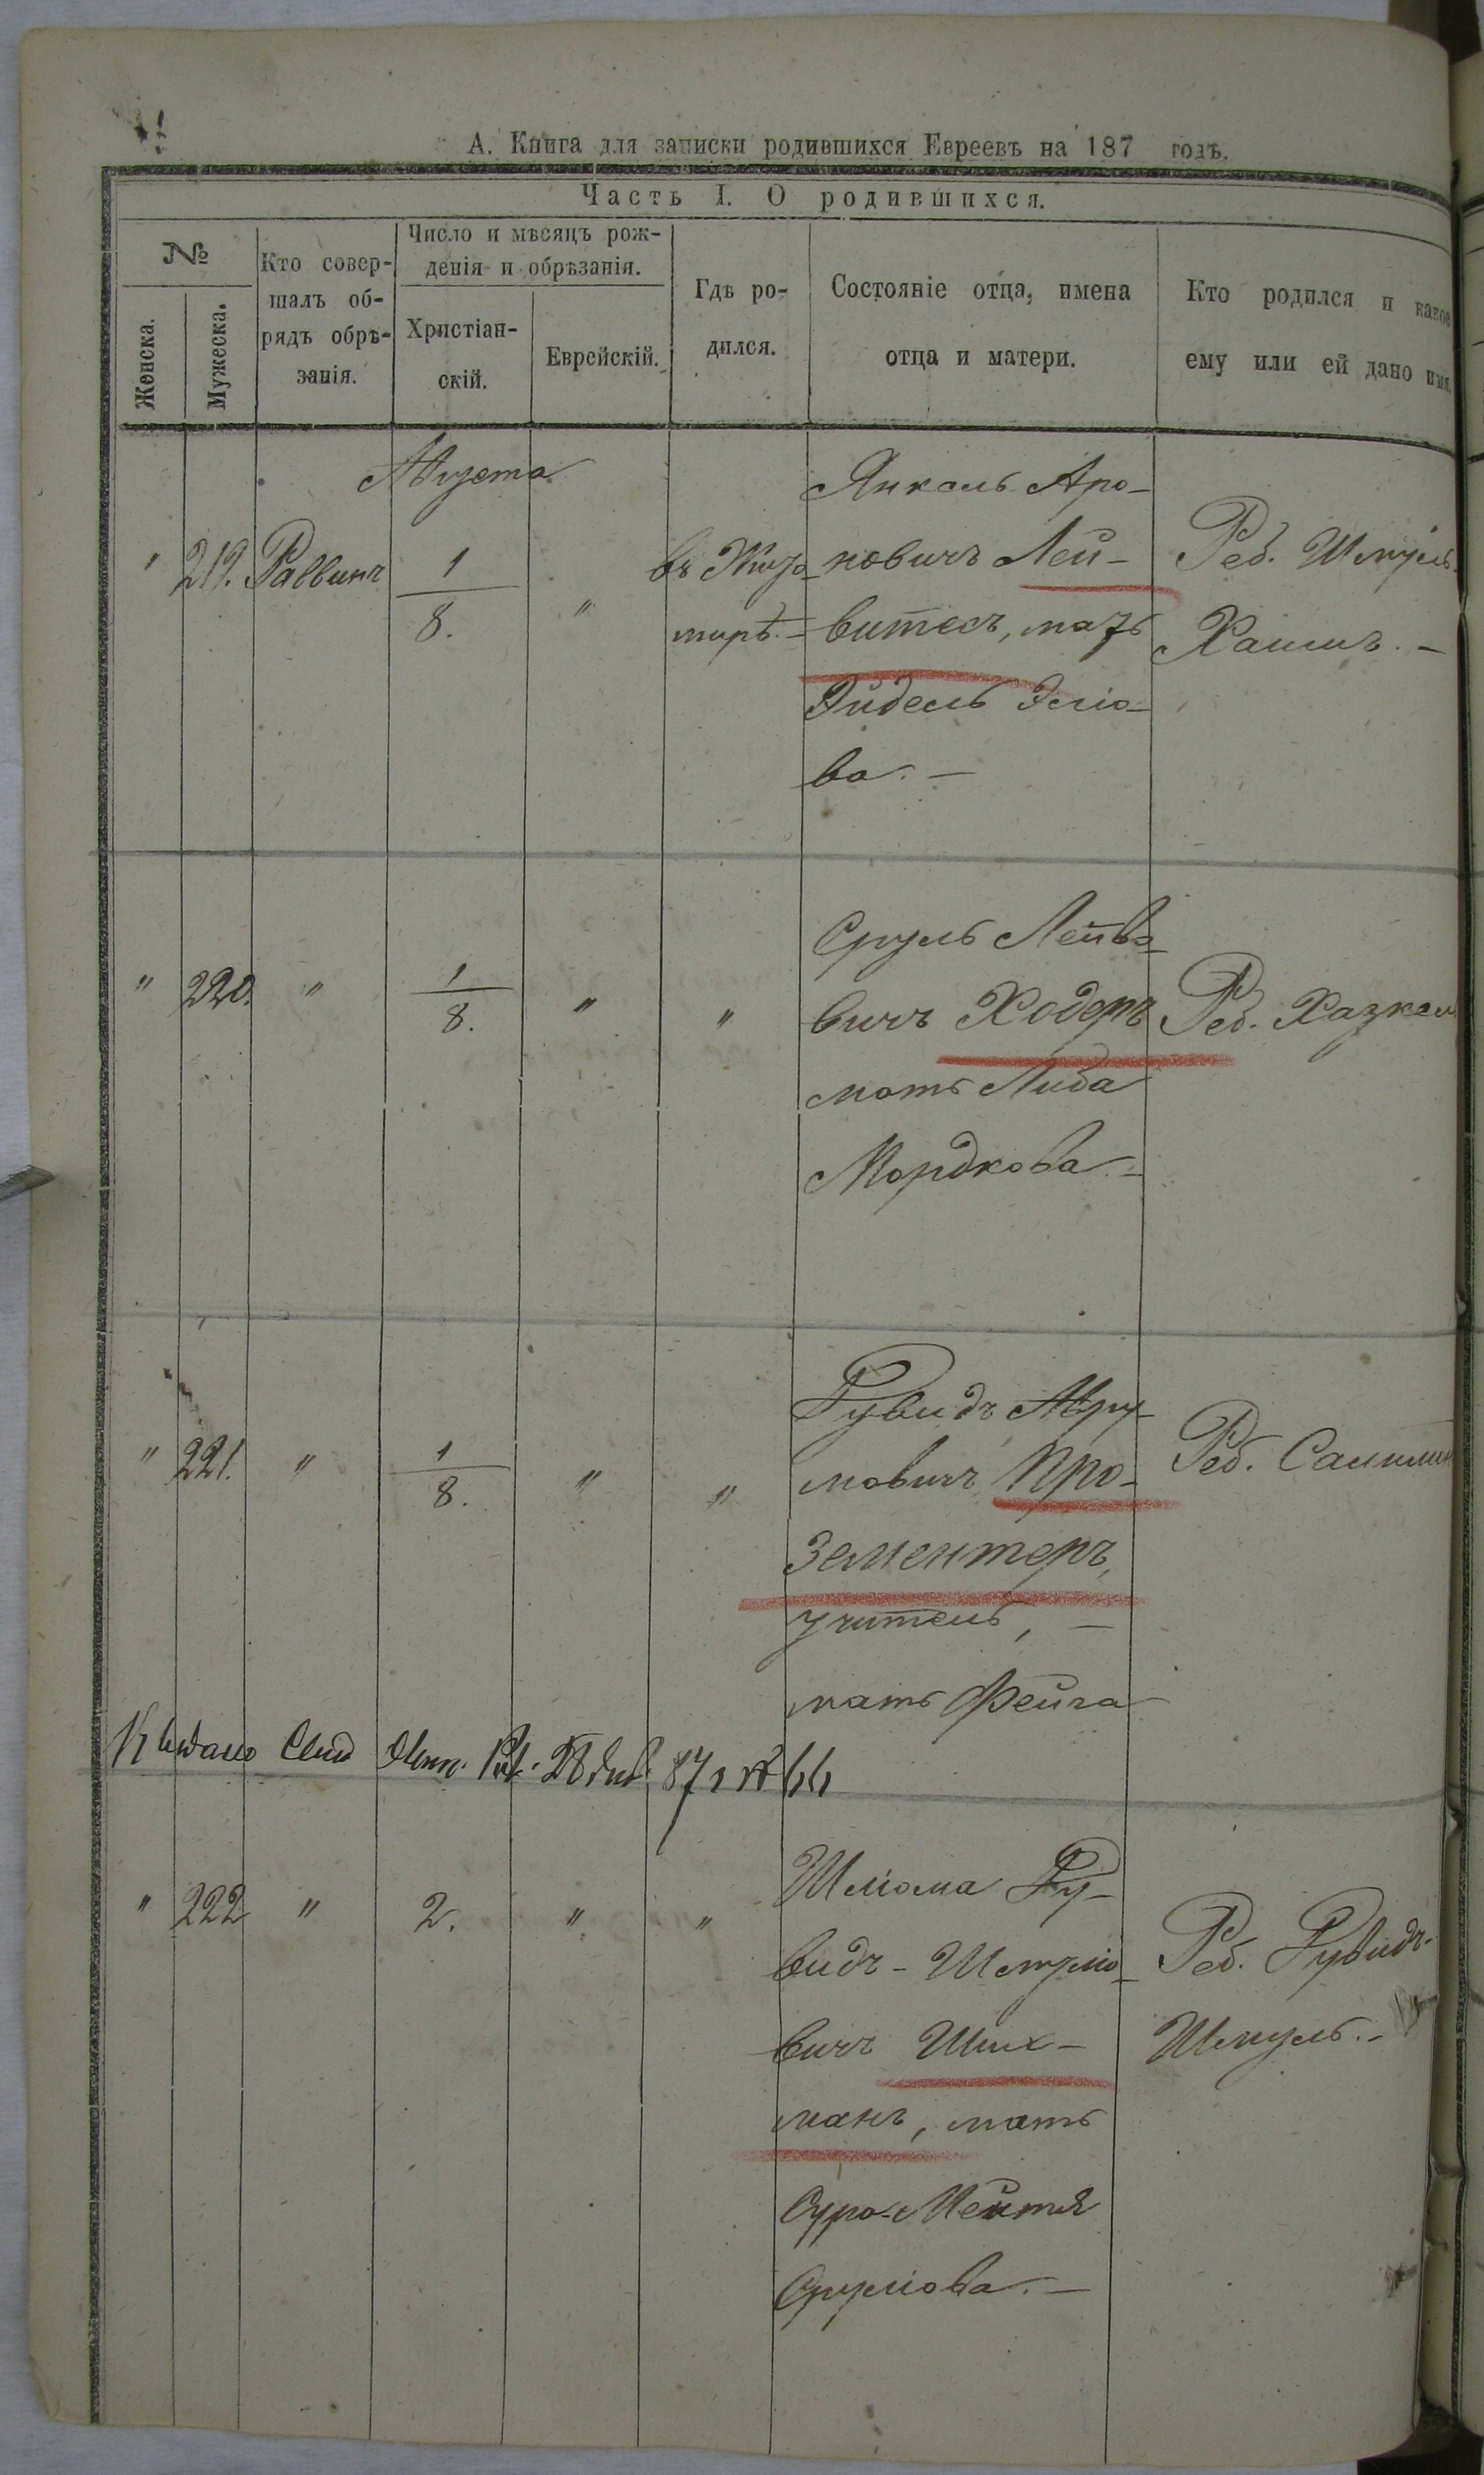 А. Книга для записки родившихся Евреевъ на 187 годъ.
Часть I. О родившихся.
№
Женска.
Мужеска.
Кто совер-
шалъ об-
рядъ обрѣ-
занія.
Число и мѣсяцъ рож-
денія и обрѣзанія.
Христіан-
скій.
Еврейскій.
Гдѣ ро-
дился.
Состояніе отца, имена
отца и матери.
Кто родился и какое
ему или ей дано имя.
Августа
" 219. Раввинъ
1
8.
"
въ Жито-
мирѣ.-
Янкель Аро-
новичъ Лей-
витесъ, мать
Эйдель Эліо-
ва. -
Реб. Шмуль-
Хаимъ. -
" 220. "
1
8.
" "
Сруль Лейбо-
вичъ Ходеръ
мать Либа
Мордкова -
Реб. Хаскель
" 221. "
1
8.
" "
Дувидъ Авру-
мовичъ Про-
зементеръ,
учитель, -
мать Фейга
Реб.
Выдано 28 87 г № 66
" 222 " 2. " "
Шлиома Ду-
видъ-Шмулио-
вичъ Ших-
манъ, мать
Сура-Ментя
Срулиова. -
Реб. Дувидъ-
Шмуль. -